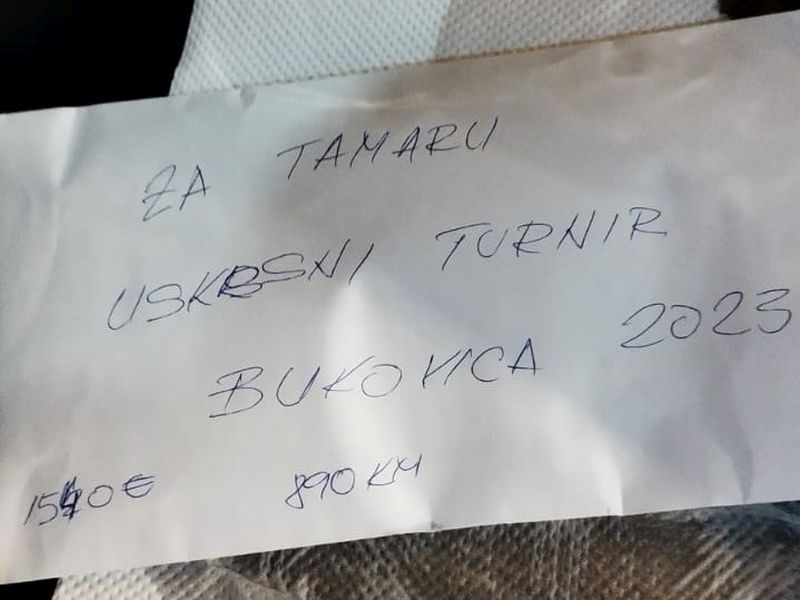 ZA TAMARU
USKRSNI TURNIR
BUKOVICA 2023
1540€ 890 KM